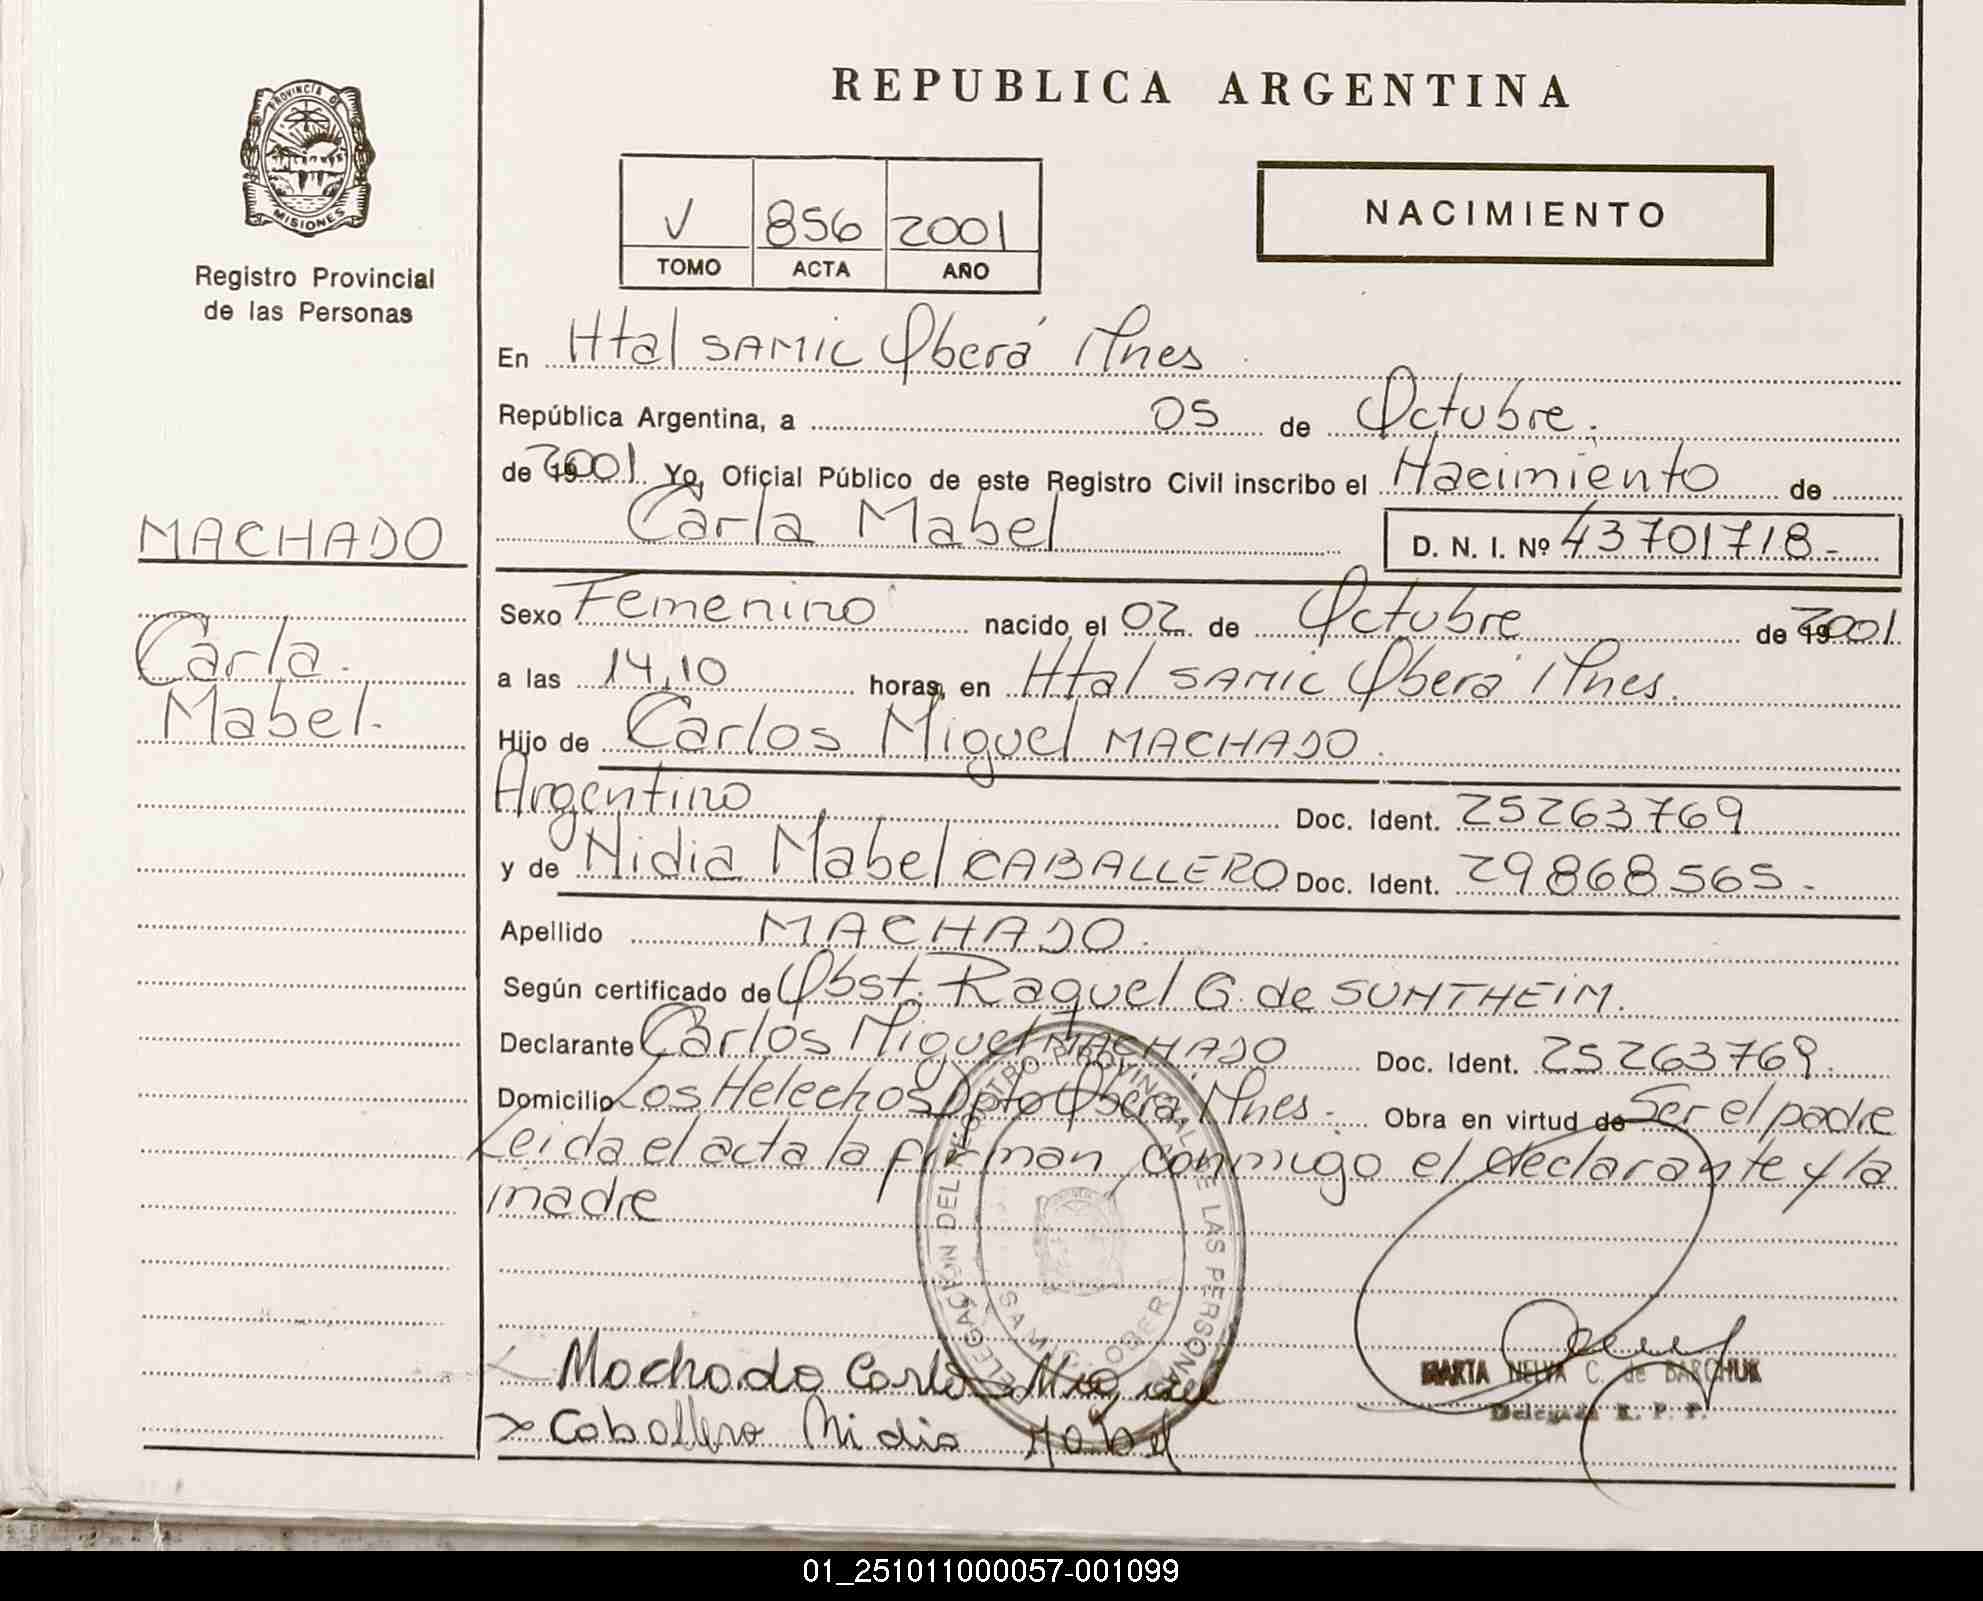 REPUBLICA ARGENTINA
PROVINCIA D
MISIONES
Registro Provincial
de las Personas
V 856 2001
TOMO ACTA AÑO
NACIMIENTO
En Htal SAMIC Oberá Mnes
República Argentina, a 05 de Octubre.
de 2001 Yo, Oficial Público de este Registro Civil inscribo el Nacimiento de
Carla Mabel D. N. I. Nº 43701718-
MACHADO
Carla
Mabel.
Sexo Femenino nacido el 02 de Octubre de 2001
a las 14,10 horas, en Htal SAMIC Oberá Mnes.
Hijo de Carlos Miguel MACHADO.
Argentino Doc. Ident. 25263769
y de Nidia Mabel CABALLERO Doc. Ident. 29868565-
Apellido MACHADO.
Según certificado de Obst. Raquel G. de SUNTHEIM.
Declarante Carlos Miguel MACHADO Doc. Ident. 25263769.
Domicilio Los Helechos Dpto Oberá, Mnes. Obra en virtud de Ser el padre
Leida el acta la firman conmigo el declarante y la
madre
DELEGACION DEL REGISTRO PROVINCIAL DE LAS PERSONAS
SAMIC OBERA
Machado Carlos Miguel
x Caballero Nidia Mabel
MARTA NELVA C. de BARCHUK
Delegada R. P. P.
01_251011000057-001099